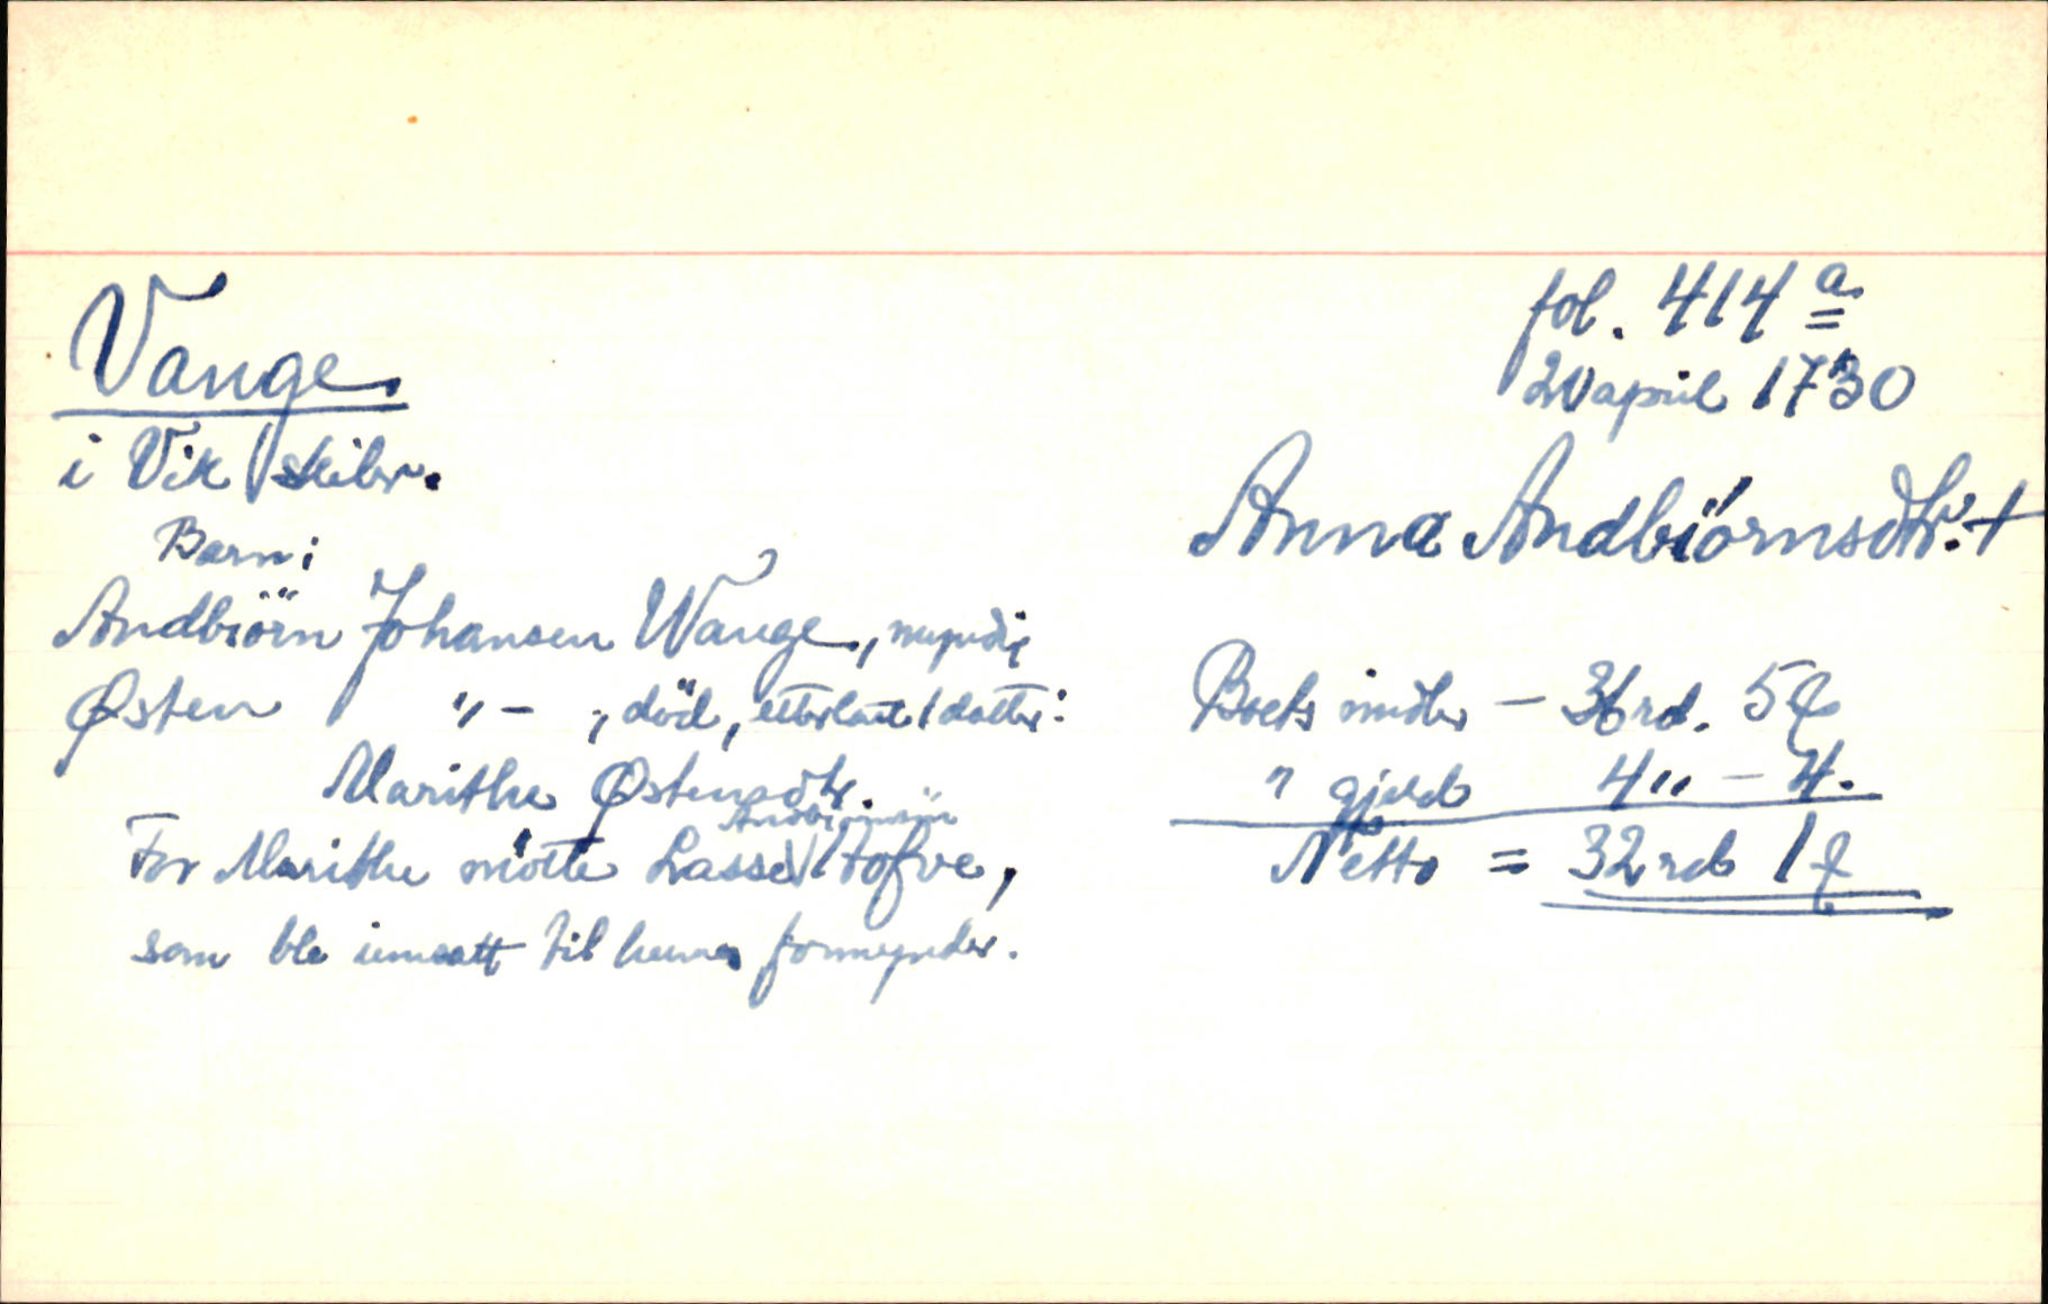 Vange
i Vik skibr.
Barn:
Andbiörn Johansen Wange, myndig
Østen " - , död, etterlatt 1 datter:
Marithe Østensdtr.
For Marithe mötte Lasse Andbiörnsön Tofve,
som ble innsatt til hennes formynder.
fol. 414 a
20 april 1730
Anna Andbiörnsdtr. +
Boets midler - 36 rd. 5
" gjeld 4 " - 4.
Netto = 32 rd 1